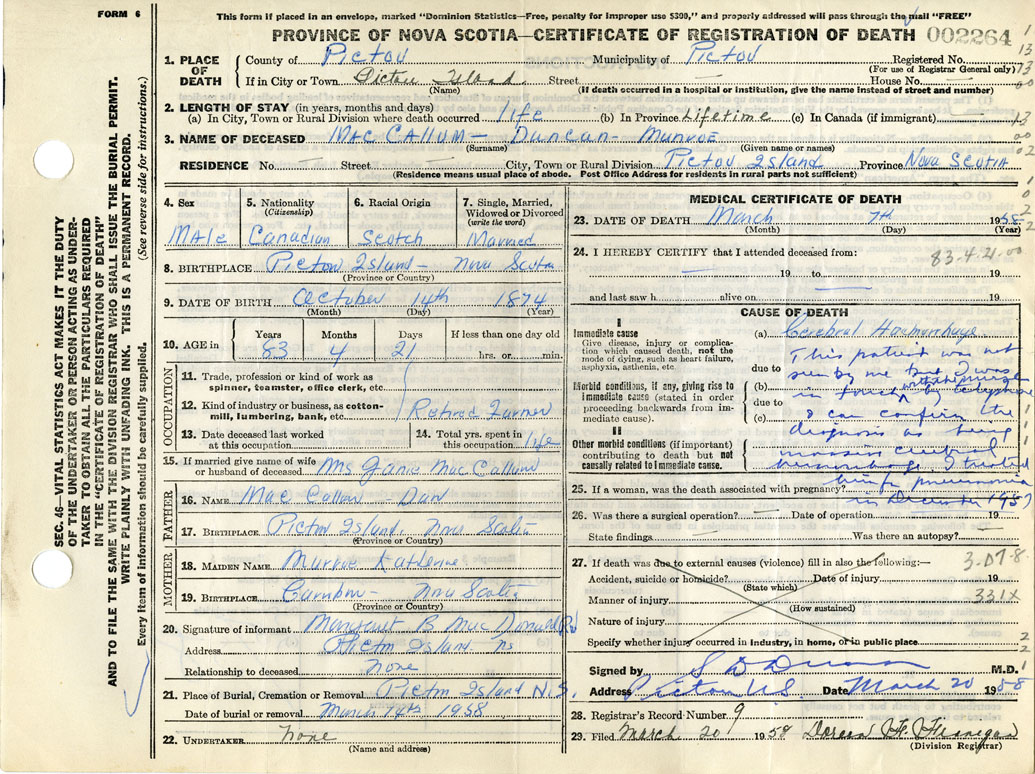 FORM 6
This form if placed in an envelope, marked "Dominion Statistics—Free, penalty for improper use $300," and properly addressed will pass through the mail "FREE"
PROVINCE OF NOVA SCOTIA—CERTIFICATE OF REGISTRATION OF DEATH 002264
1. PLACE OF DEATH County of Pictou Municipality of Pictou Registered No.
(For use of Registrar General only)
If in City or Town Pictou Island Street — House No. —
(Name) (If death occurred in a hospital or institution, give the name instead of street and number)
2. LENGTH OF STAY (in years, months and days)
(a) In City, Town or Rural Division where death occurred life (b) In Province Lifetime (c) In Canada (if immigrant) —
3. NAME OF DECEASED MacCallum — Duncan Munroe
(Surname) (Given name or names)
RESIDENCE No. — Street — City, Town or Rural Division Pictou Island Province Nova Scotia
(Residence means usual place of abode. Post Office Address for residents in rural parts not sufficient)
4. Sex 5. Nationality (Citizenship) 6. Racial Origin 7. Single, Married, Widowed or Divorced (write the word)
Male Canadian Scotch Married
8. BIRTHPLACE Pictou Island — Nova Scotia
(Province or Country)
9. DATE OF BIRTH October 14th 1874
(Month) (Day) (Year)
10. AGE in Years Months Days If less than one day old
83 4 21 hrs. or min.
OCCUPATION
11. Trade, profession or kind of work as spinner, teamster, office clerk, etc.
12. Kind of industry or business, as cotton-mill, lumbering, bank, etc. Retired Farmer
13. Date deceased last worked at this occupation
14. Total yrs. spent in this occupation life
15. If married give name of wife or husband of deceased Mrs Janie MacCallum
FATHER
16. NAME MacCallum — Dan
17. BIRTHPLACE Pictou Island. Nova Scotia
(Province or Country)
MOTHER
18. MAIDEN NAME Munroe Katherine
19. BIRTHPLACE Nova Scotia
(Province or Country)
20. Signature of informant Margaret B MacDonald
Address Pictou Island NS
Relationship to deceased None
21. Place of Burial, Cremation or Removal Pictou Island N.S.
Date of burial or removal March 14th 1958
22. UNDERTAKER None
(Name and address)
MEDICAL CERTIFICATE OF DEATH
23. DATE OF DEATH March 7th 1958
(Month) (Day) (Year)
24. I HEREBY CERTIFY that I attended deceased from: 83-4-21-00
— 19 to — 19
and last saw h alive on — 19
CAUSE OF DEATH
I
Immediate cause
Give disease, injury or complication which caused death, not the mode of dying, such as heart failure, asphyxia, asthenia, etc.
Morbid conditions, if any, giving rise to immediate cause (stated in order proceeding backwards from immediate cause).
II
Other morbid conditions (if important) contributing to death but not causally related to immediate cause.
(a) Cerebral Haemorrhage
due to
(b)
due to
(c)
This patient was not
seen by me but I was
in touch with the nurse by telephone
I can confirm the
diagnosis as being
massive cerebral
hemorrhage. I treated
him for pneumonia
in December 1957
25. If a woman, was the death associated with pregnancy?
26. Was there a surgical operation? — Date of operation — 19
State findings Was there an autopsy?
27. If death was due to external causes (violence) fill in also the following:— 3-07-8
Accident, suicide or homicide? Date of injury 19
(State which)
Manner of injury 331X
(How sustained)
Nature of injury
Specify whether injury occurred in industry, in home, or in public place
Signed by M.D.
Address Pictou N.S. Date March 20 1958
28. Registrar's Record Number 9
29. Filed March 20 1958
(Division Registrar)
SEC. 46—VITAL STATISTICS ACT MAKES IT THE DUTY
OF THE UNDERTAKER OR PERSON ACTING AS UNDER-
TAKER TO OBTAIN ALL THE PARTICULARS REQUIRED
IN THE "CERTIFICATE OF REGISTRATION OF DEATH"
AND TO FILE THE SAME WITH THE DIVISION REGISTRAR WHO SHALL ISSUE THE BURIAL PERMIT.
WRITE PLAINLY WITH UNFADING INK. THIS IS A PERMANENT RECORD.
Every item of information should be carefully supplied. (See reverse side for instructions.)